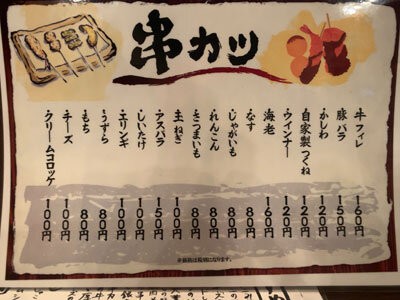 串カツ
・牛フィレ 160円
・豚バラ 150円
・かしわ 120円
・自家製つくね 120円
・ウインナー 120円
・海老 160円
・なす 80円
・じゃがいも 80円
・れんこん 80円
・さつまいも 80円
・玉ねぎ 100円
・アスパラ 150円
・しいたけ 100円
・エリンギ 100円
・うずら 80円
・もち 80円
・チーズ 100円
・クリームコロッケ 100円
※価格は税別になります。